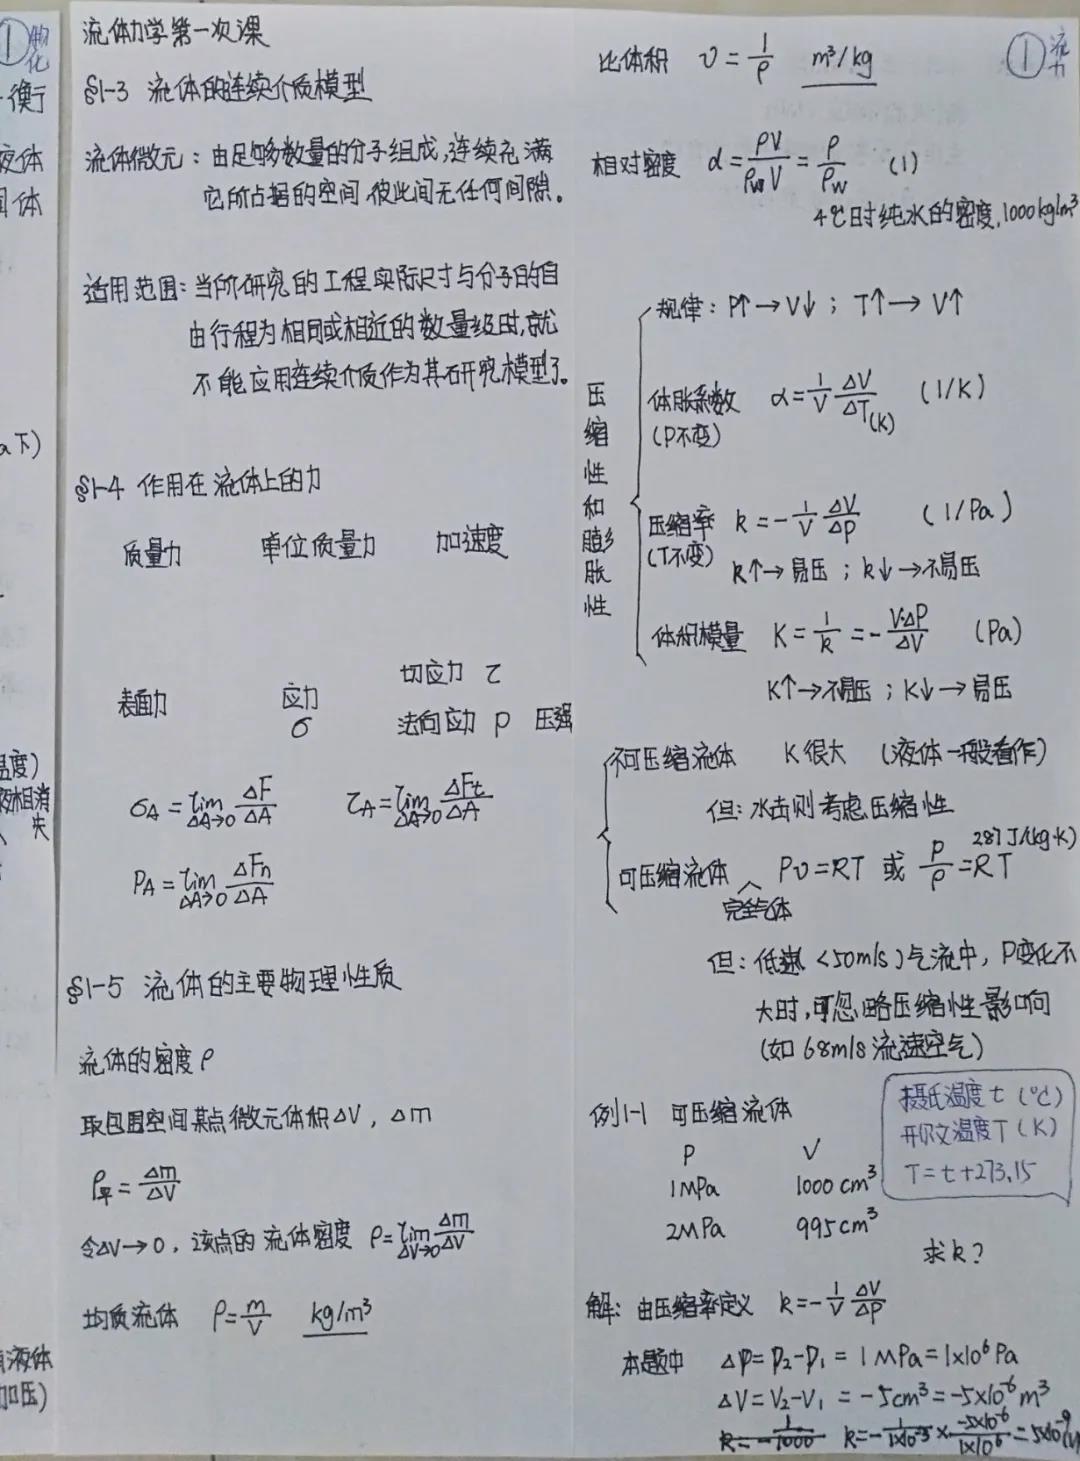 流体力学第一次课
§1-3 流体的连续介质模型
流体微元：由足够数量的分子组成,连续充满
它所占据的空间,彼此间无任何间隙。
适用范围：当所研究的工程实际尺寸与分子的自
由行程为相同或相近的数量级时,就
不能应用连续介质作为其研究模型了。
§1-4 作用在流体上的力
质量力 单位质量力 加速度
表面力 应力 σ
切应力 τ
法向应力 p 压强
σA = lim ΔA→0 ΔF/ΔA τA = lim ΔA→0 ΔFt/ΔA
PA = lim ΔA→0 ΔFn/ΔA
§1-5 流体的主要物理性质
流体的密度 ρ
取包围空间某点微元体积ΔV, Δm
ρ平 = Δm/ΔV
令ΔV→0, 该点的流体密度 ρ = lim ΔV→0 Δm/ΔV
均质流体 ρ = m/V kg/m³
① 流力
比体积 υ = 1/ρ m³/kg
相对密度 d = ρV/ρwV = ρ/ρw (1)
4℃时纯水的密度,1000kg/m³
压缩性和膨胀性
规律：P↑→V↓；T↑→V↑
体胀系数 α = 1/V ΔV/ΔT(K) (1/K)
(P不变)
压缩率 k = -1/V ΔV/ΔP (1/Pa)
(T不变) k↑→易压；k↓→不易压
体积模量 K = 1/k = -V·ΔP/ΔV (Pa)
K↑→不易压；K↓→易压
不可压缩流体 K很大 (液体一般看作)
但：水击则考虑压缩性
287J/(kg·K)
可压缩流体 Pυ=RT 或 P/ρ=RT
完全气体
但：低速(<50m/s)气流中，P变化不
大时,可忽略压缩性影响
(如68m/s流速空气)
摄氏温度 t (℃)
开尔文温度 T (K)
T = t+273.15
例1-1 可压缩流体
P V
1MPa 1000cm³
2MPa 995cm³
求k?
解：由压缩率定义 k = -1/V ΔV/ΔP
本题中 ΔP = P₂-P₁ = 1MPa = 1×10⁶Pa
ΔV = V₂-V₁ = -5cm³ = -5×10⁻⁶m³
k = -1/1000 k = -1/1×10⁻³ × -5×10⁻⁶/1×10⁶ = 5×10⁻⁹
① 物化
衡
液体
固体
a下)
温度)
液相消
失
液体
加压)